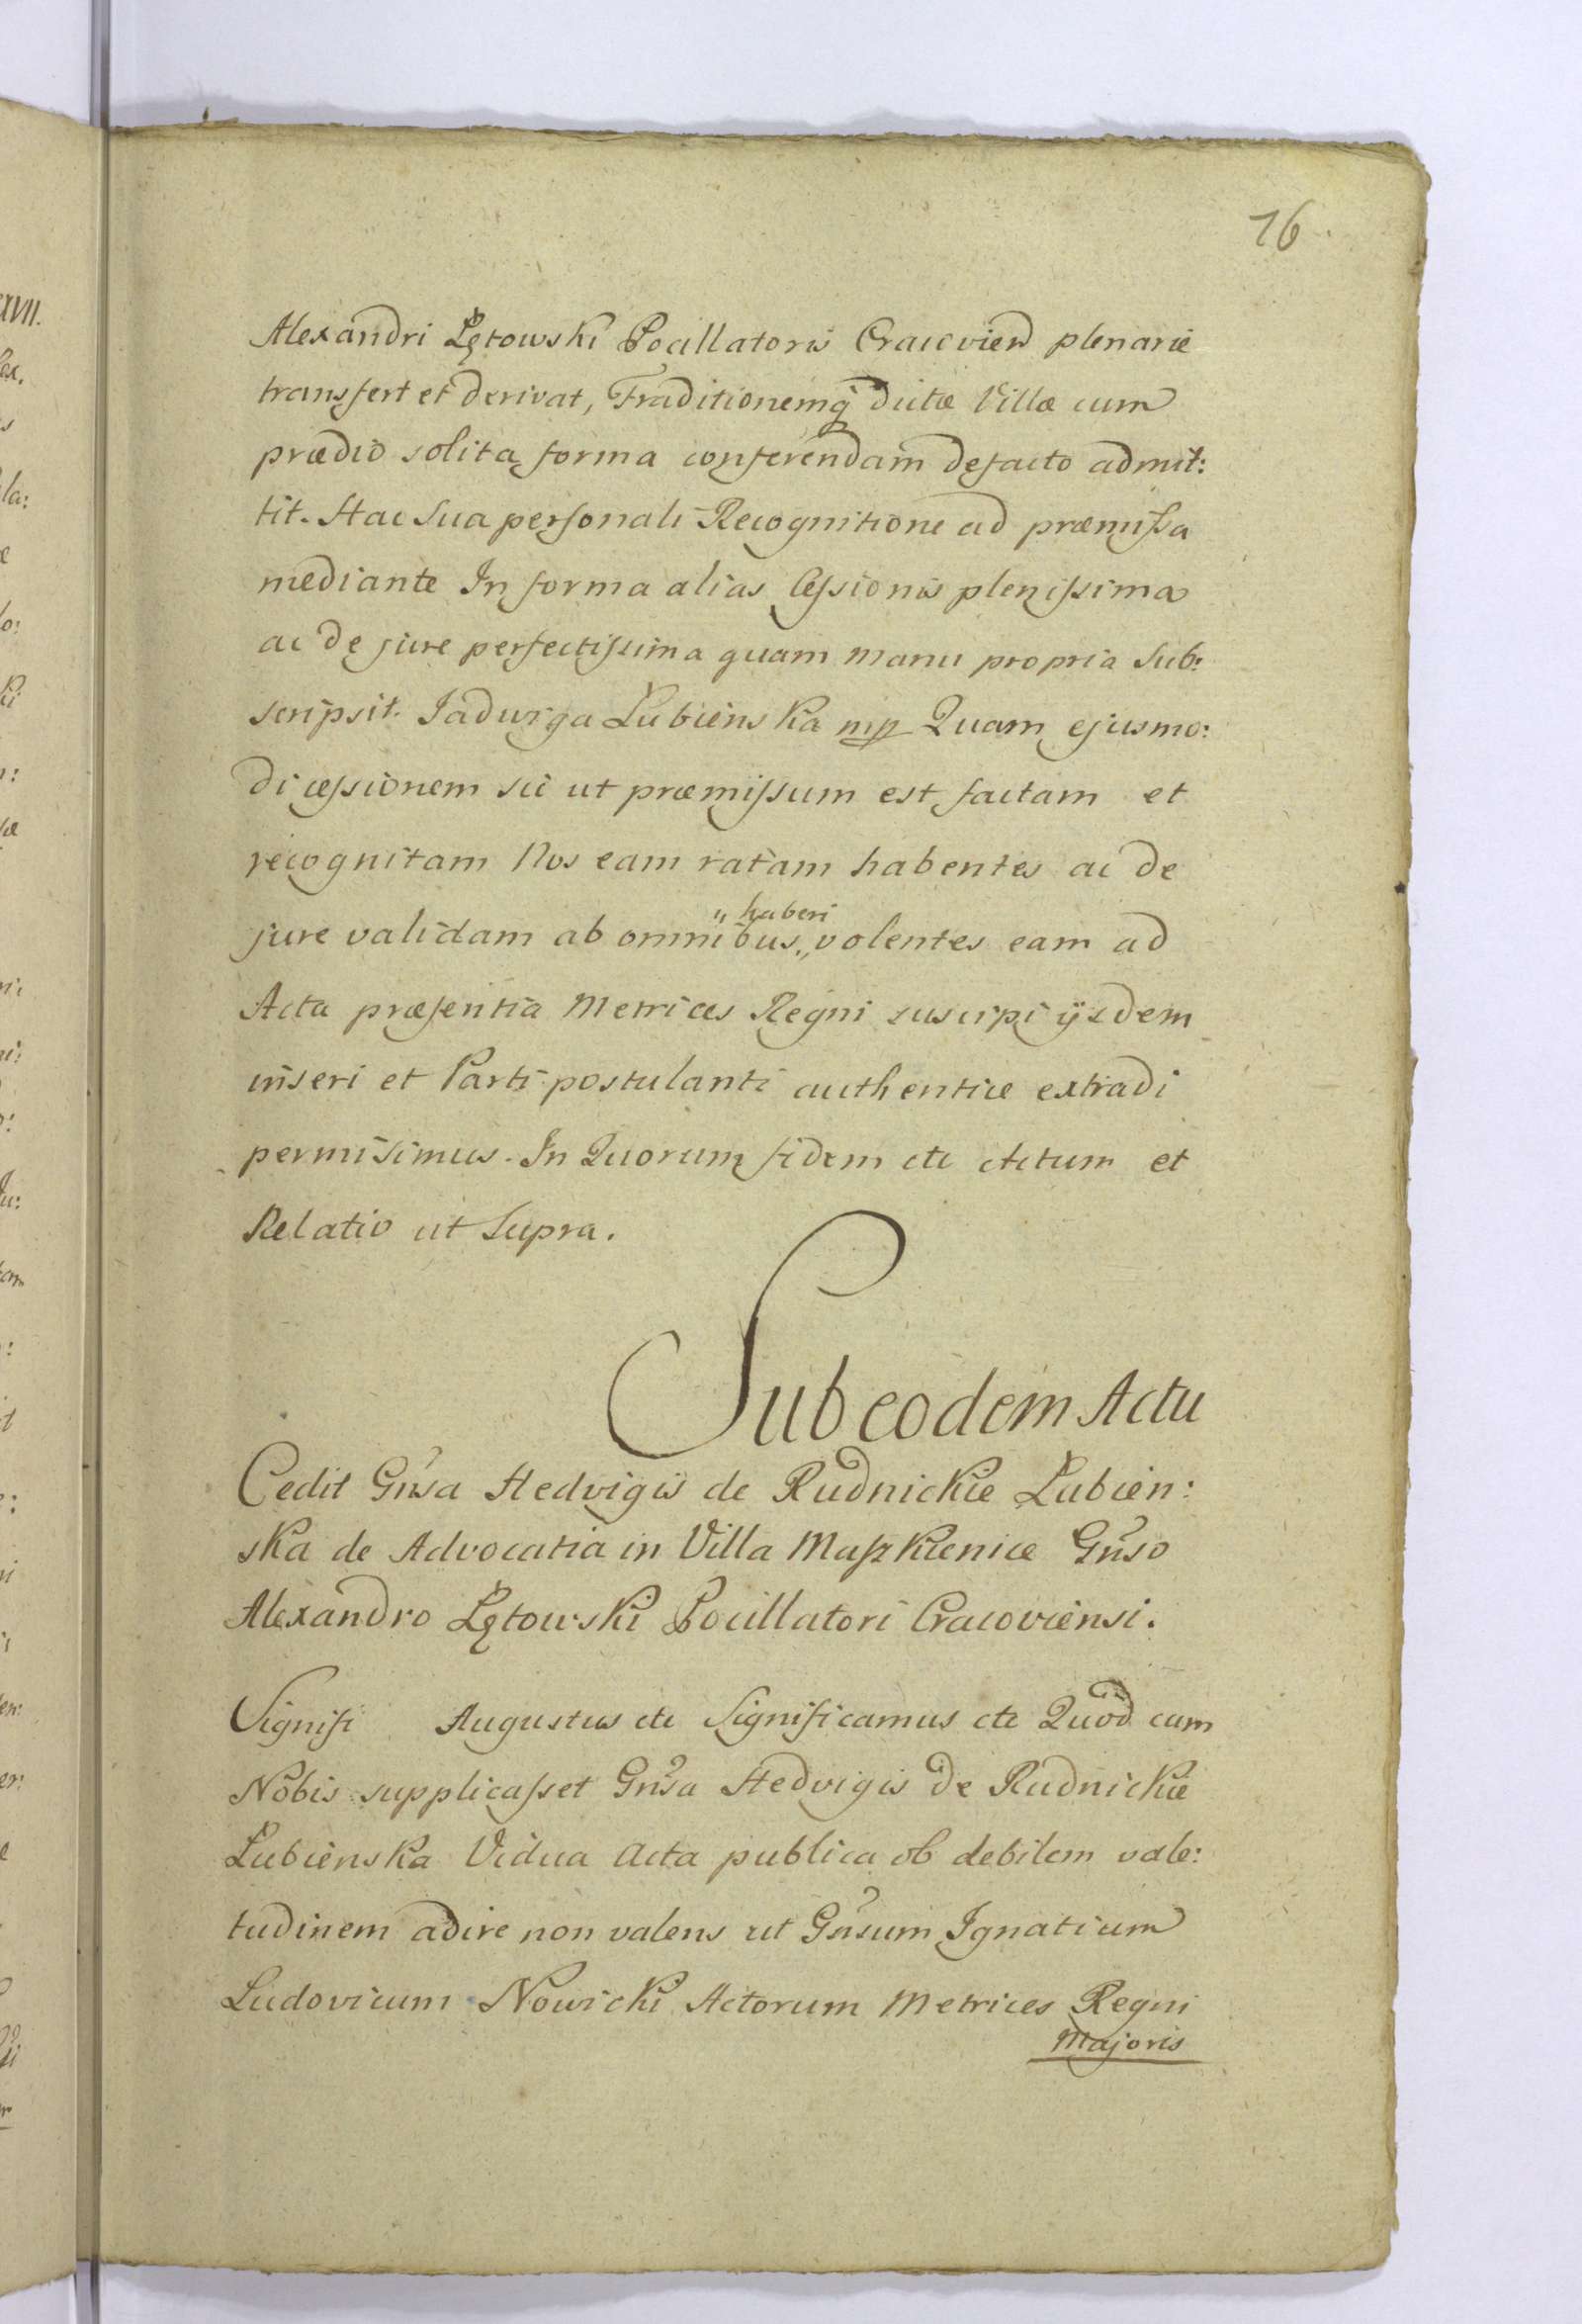 76.
Alexandri Łętowski Pocillatoris Cracovien plenarie
transfert et derivat, Traditionemq dictæ Villæ cum
prædio solita forma conferendam defacto admit:
tit. Hac Sua personali Recognitione ad præmissa
mediante In forma alias Cessionis plenissima
ac de jure perfectissima quam manu propria Sub:
scripsit. Jadwiga Łubienska mp Quam ejusmo:
di cessionem sic ut præmissum est factam et
recognitam Nos eam ratam habentes ac de
jure validam ab omnibus „haberi„ volentes eam ad
Acta præsentia Metrices Regni suscipi ijsdem
inseri et Parti postulanti authentice extradi
permisimus. In Quorum fidem etc Actum et
Relatio ut Supra.
Sub eodem Actu
Cedit Gnsa Hedvigis de Rudnickie Łubien:
ska de Advocatia in Villa Maszkienice Gnso
Alexandro Łętowski Pocillatori Cracoviensi.
Signifi Augustus etc Significamus etc Quod cum
Nobis supplicasset Gnsa Hedvigis de Rudnickie
Łubienska Vidua Acta publica ob debilem vale:
tudinem adire non valens ut Gnsum Ignatium
Ludovicum Nowicki Actorum Metrices Regni
Majoris